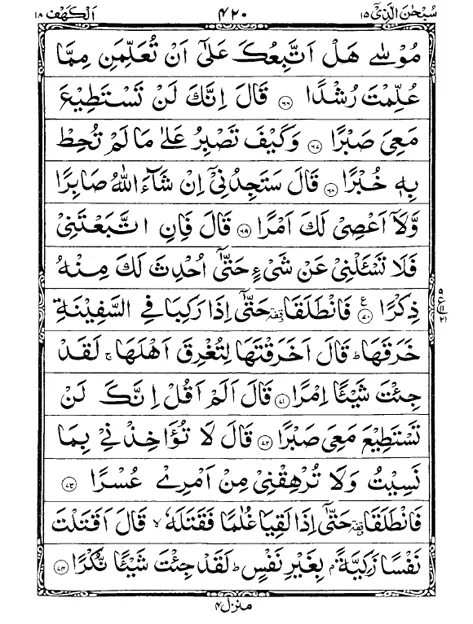 سُبْحٰنَ الَّذِیْۤ ۱۵ ۴۲۰ اَلْکَهْف ۱۸
مُوْسٰی هَلْ اَتَّبِعُكَ عَلٰۤی اَنْ تُعَلِّمَنِ مِمَّا
عُلِّمْتَ رُشْدًا ﴿۶۶﴾ قَالَ اِنَّكَ لَنْ تَسْتَطِیْعَ
مَعِیَ صَبْرًا ﴿۶۷﴾ وَكَیْفَ تَصْبِرُ عَلٰی مَا لَمْ تُحِطْ
بِهٖ خُبْرًا ﴿۶۸﴾ قَالَ سَتَجِدُنِیْۤ اِنْ شَآءَ اللّٰهُ صَابِرًا
وَّلَاۤ اَعْصِیْ لَكَ اَمْرًا ﴿۶۹﴾ قَالَ فَاِنِ اتَّبَعْتَنِیْ
فَلَا تَسْـَٔلْنِیْ عَنْ شَیْءٍ حَتّٰۤی اُحْدِثَ لَكَ مِنْهُ
ذِكْرًا ﴿۷۰﴾ ع فَانْطَلَقَا وقفة حَتّٰۤی اِذَا رَكِبَا فِی السَّفِیْنَةِ
خَرَقَهَا ؕ قَالَ اَخَرَقْتَهَا لِتُغْرِقَ اَهْلَهَا ۚ لَقَدْ
جِئْتَ شَیْـًٔا اِمْرًا ﴿۷۱﴾ قَالَ اَلَمْ اَقُلْ اِنَّكَ لَنْ
تَسْتَطِیْعَ مَعِیَ صَبْرًا ﴿۷۲﴾ قَالَ لَا تُؤَاخِذْنِیْ بِمَا
نَسِیْتُ وَلَا تُرْهِقْنِیْ مِنْ اَمْرِیْ عُسْرًا ﴿۷۳﴾
فَانْطَلَقَا وقفة حَتّٰۤی اِذَا لَقِیَا غُلٰمًا فَقَتَلَهٗ ۙ قَالَ اَقَتَلْتَ
نَفْسًا زَكِیَّةًۢ بِغَیْرِ نَفْسٍ ؕ لَقَدْ جِئْتَ شَیْـًٔا نُّكْرًا ﴿۷۴﴾
منزل ۴